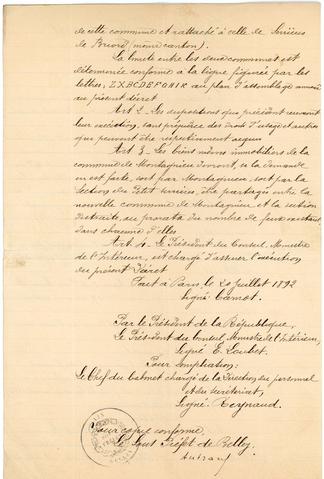 de cette commune et rattaché à celle de Serrières
de Briord (même canton).
La limite entre les deux communes est
déterminée conforme à la ligne figurée par les
lettres, Z X B C D E F G H I K au plan d'assemblage annexé
au présent décret
Art 2 - Les dispositions qui précèdent recevront
leur exécution, sans préjudice des droits d'usage et autres
qui peuvent être respectivement acquis
Art 3 - Les biens immobiliers de la
commune de Montagnieu devront, si la demande
en est faite, soit par Montagnieu, soit par la
Section du Petit Serrières, être partagés entre la
nouvelle commune de Montagnieu et la section
distraite, au prorata du nombre de feux existant
dans chacune d'elles
Art. 4 - Le Président du Conseil, Ministre
de l'Intérieur, est chargé d'assurer l'exécution
du présent Décret
Fait à Paris le 20 Juillet 1892
Signé Carnot.
Par le Président de la République,
Le Président du Conseil Ministre de l'Intérieur,
Signé E. Loubet
Pour ampliation:
Le Chef du Cabinet chargé de la Direction du personnel
et du secrétariat,
Signé: Reynaud.
Pour copie conforme,
Le Sous Préfet de Belley